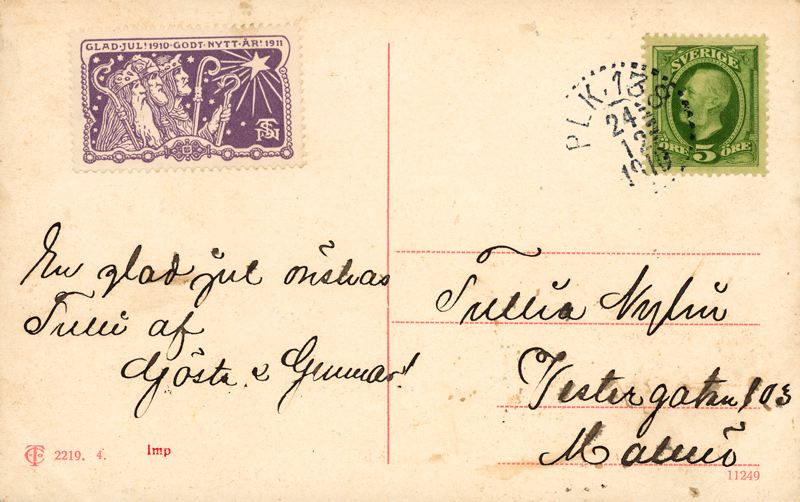 GLAD·JUL! 1910·GODT·NYTT·ÅR! 1911
SVERIGE
5
ÖRE ÖRE
PLK. 138
24
12
1910
En glad jul önskas
Tulli af
Gösta & Gunnar!
Tullia Nylin
Vestergatan 103
Malmö
2219. 4.
Imp
11249